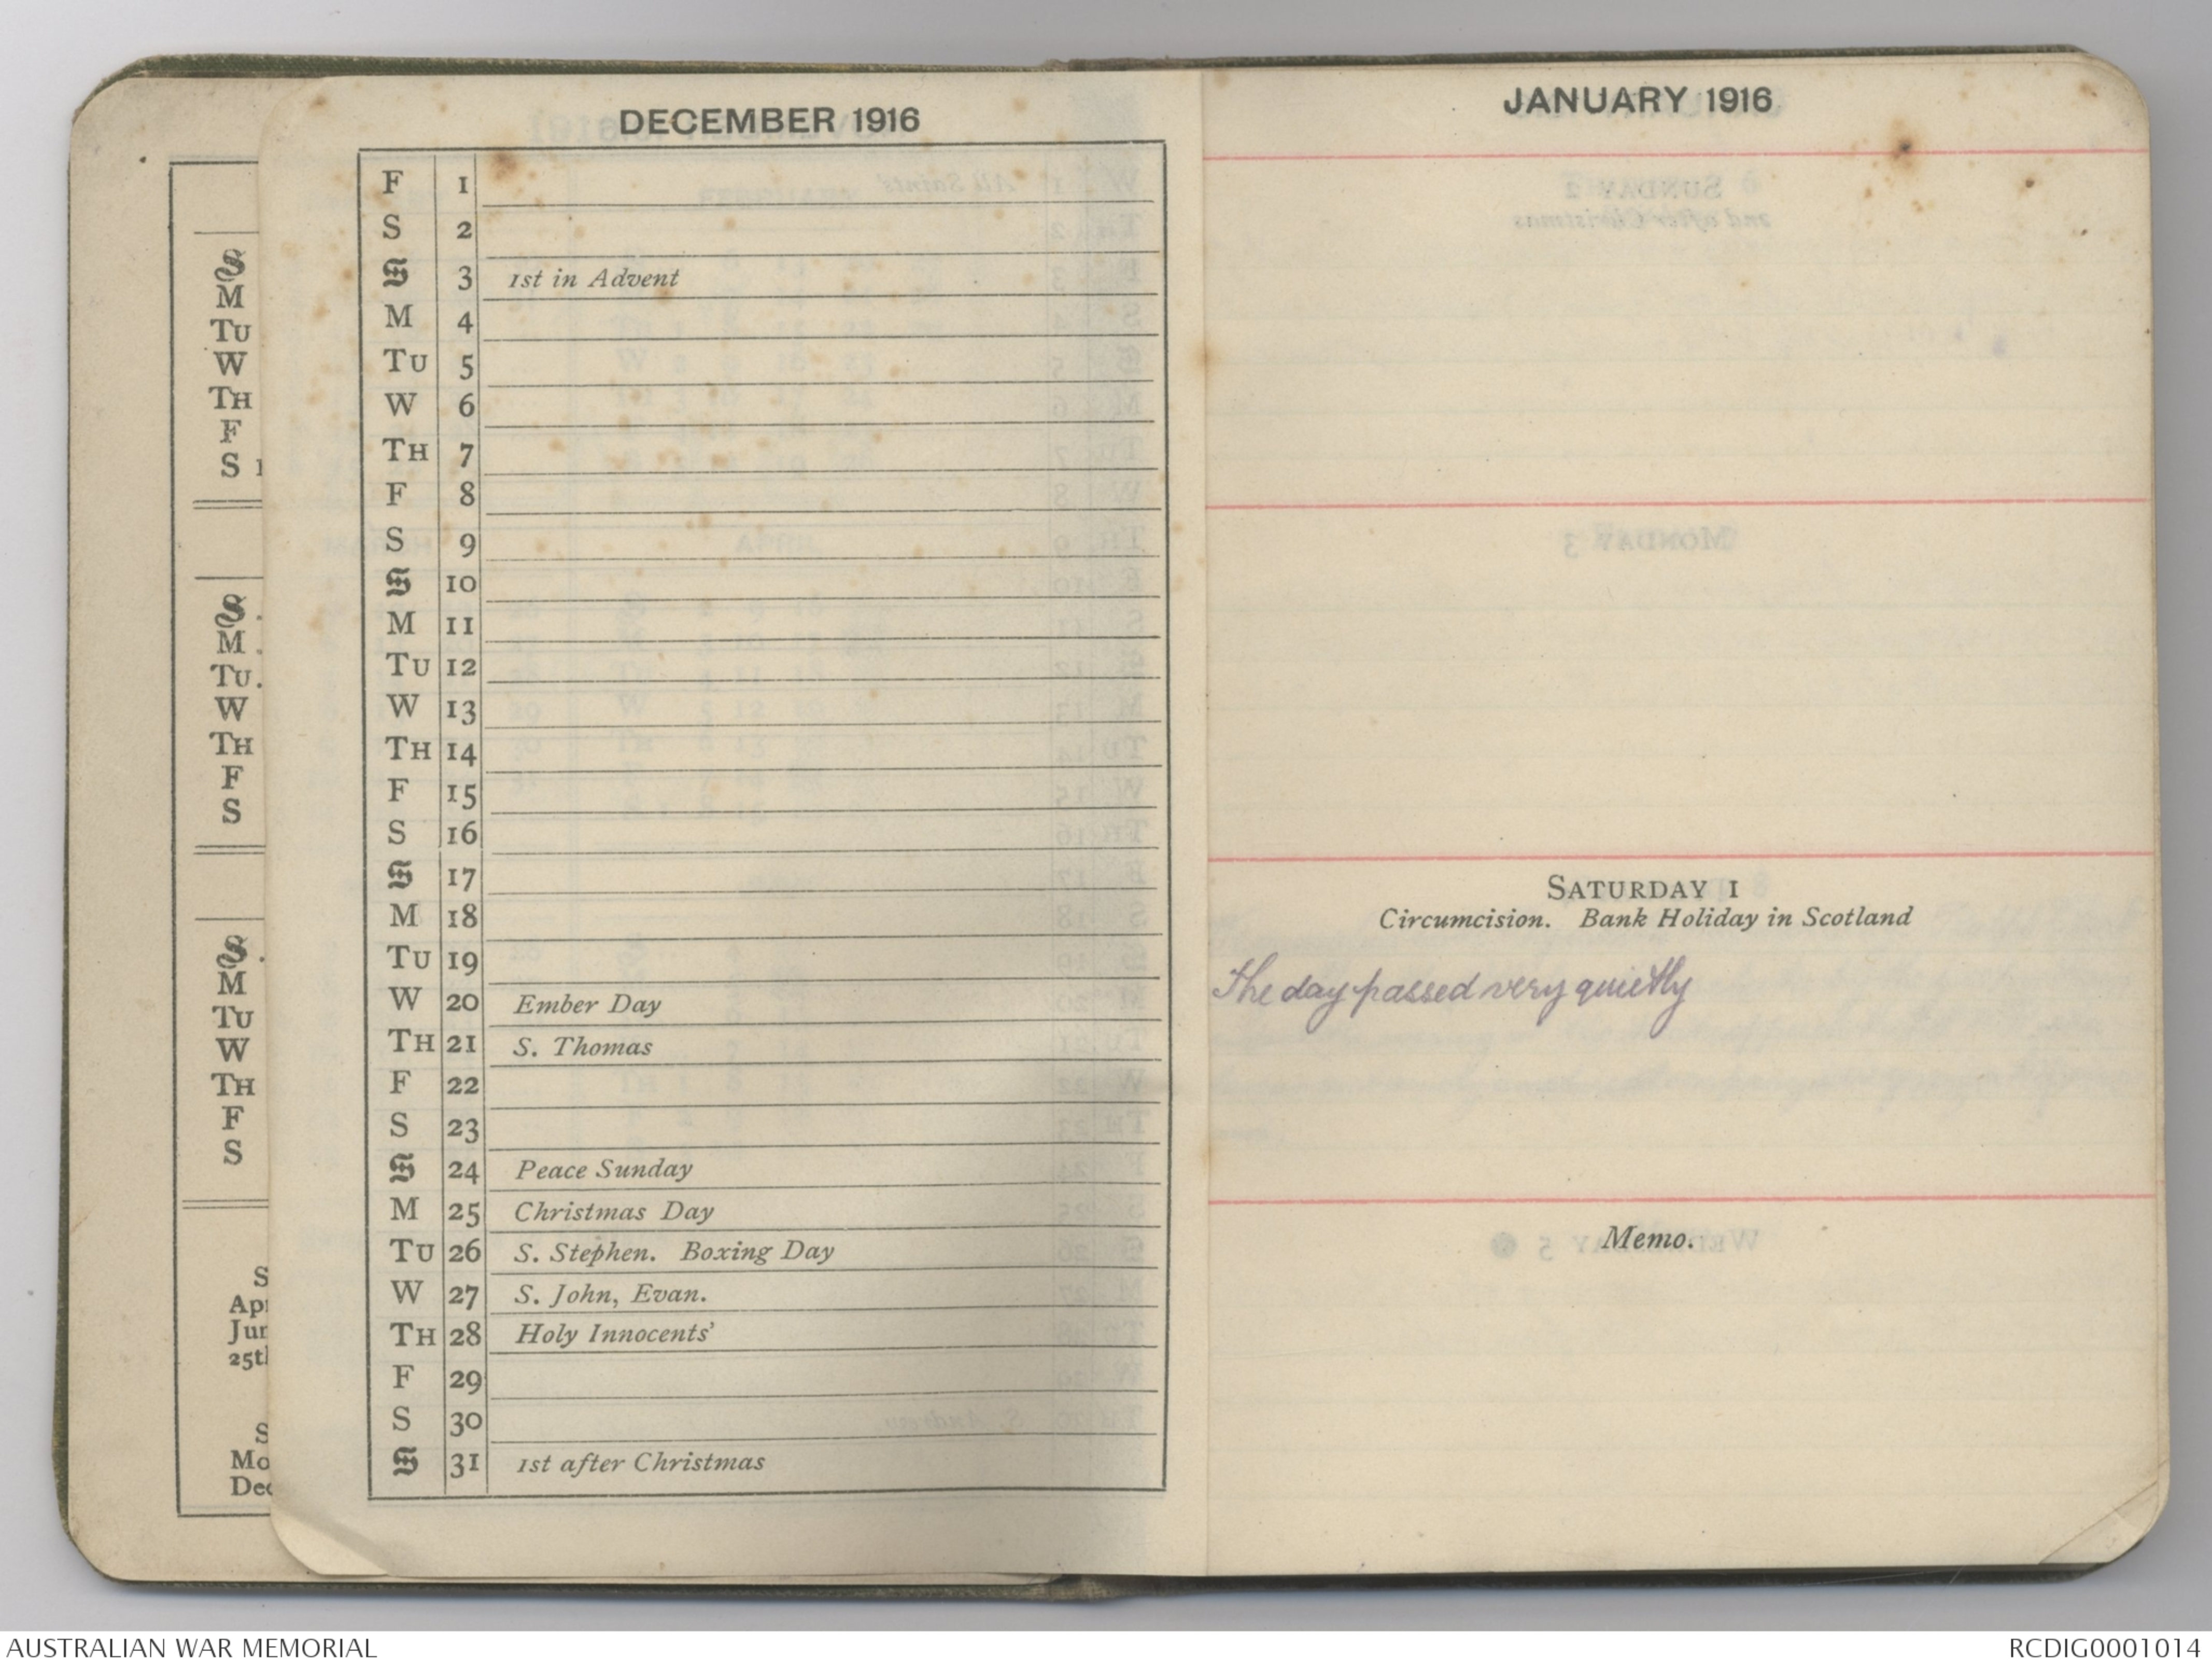 S
M
Tu
W
Th
F
S 1
S.
M.
Tu.
W
Th
F
S
S.
M
Tu
W
Th
F
S
S
Ap
Jun
25t
S
Mo
Dec
DECEMBER 1916
F 1
S 2
S 3 1st in Advent
M 4
Tu 5
W 6
Th 7
F 8
S 9
S 10
M 11
Tu 12
W 13
Th 14
F 15
S 16
S 17
M 18
Tu 19
W 20 Ember Day
Th 21 S. Thomas
F 22
S 23
S 24 Peace Sunday
M 25 Christmas Day
Tu 26 S. Stephen. Boxing Day
W 27 S. John, Evan.
Th 28 Holy Innocents'
F 29
S 30
S 31 1st after Christmas
JANUARY 1916
Saturday 1
Circumcision. Bank Holiday in Scotland
The day passed very quietly
Memo.
AUSTRALIAN WAR MEMORIAL
RCDIG0001014